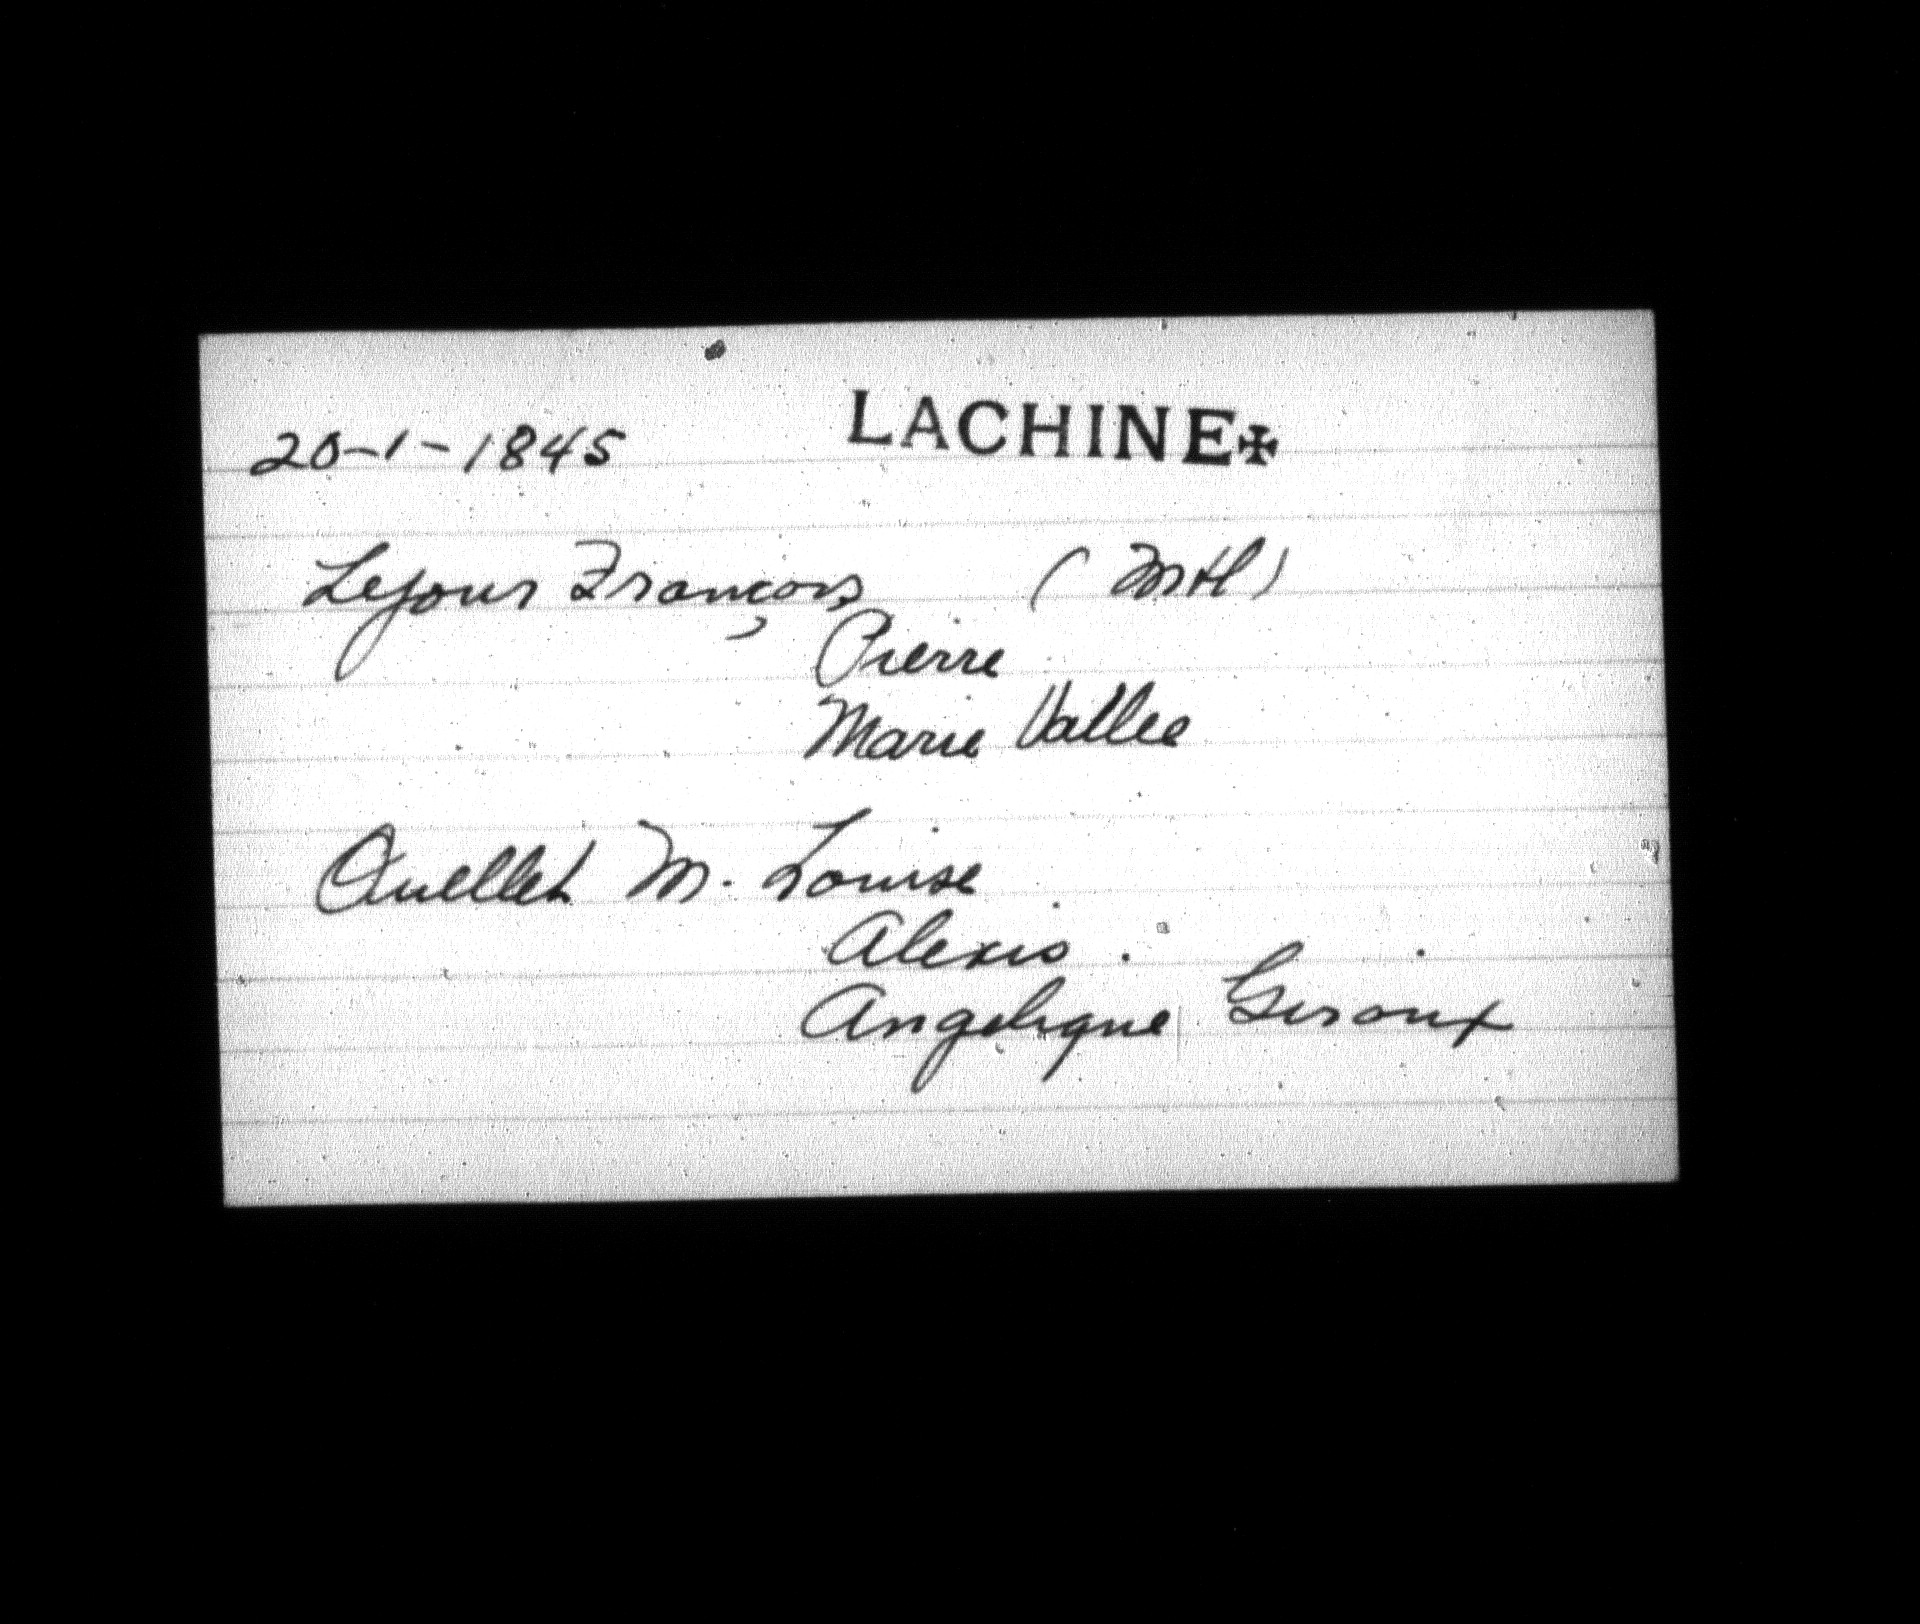 20-1-1845 LACHINE✠
Lejour François (Mtl)
Pierre
Marie Vallee
Ouellet M. Louise
Alexis.
Angelique Giroux